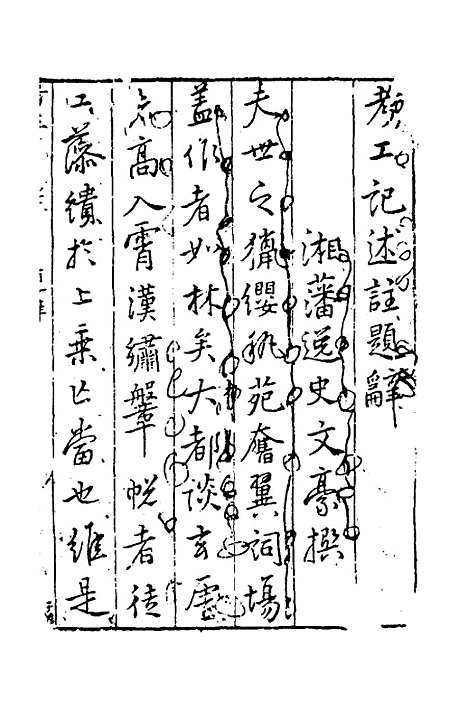 考工記述註題辭
湘藩逸史文豪撰
夫世之摛纓執苑奮翼詞場
蓋作者如林矣大都談玄虛
者高入霄漢繡鞶帨者徒
工藻繢於上乘亡當也維是